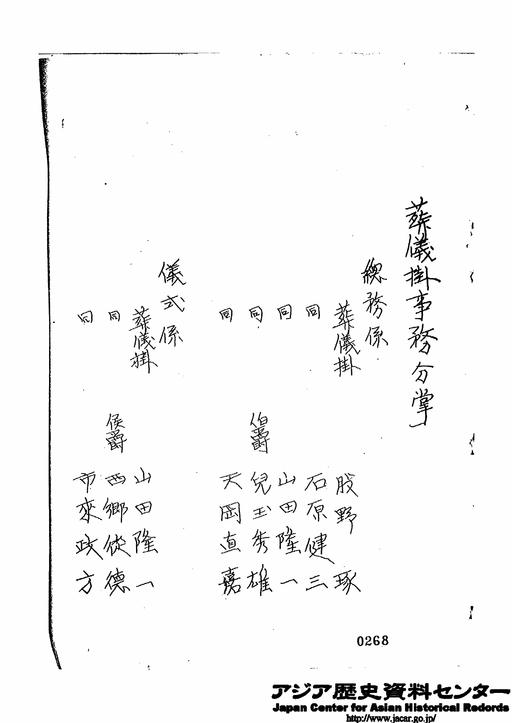 葬儀掛事務分掌」
總務係
葬儀掛 股野琢
同 石原健三
同 山田隆一
同 伯爵 兒玉秀雄
同 天岡直嘉
儀式係
葬儀掛 山田隆一
同 侯爵 西郷從德
同 市來政方
0268
アジア歴史資料センター
Japan Center for Asian Historical Records
http://www.jacar.go.jp/